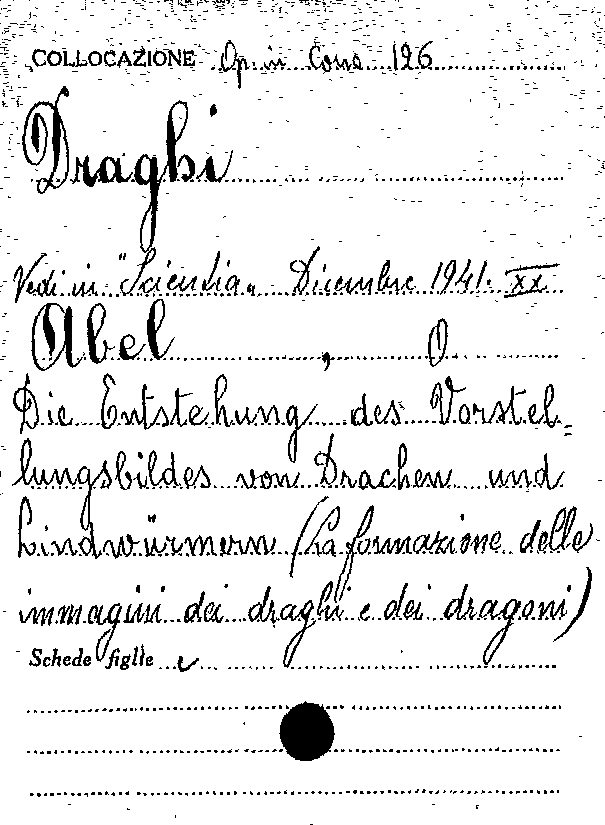 COLLOCAZIONE Op. in Cons 126
Draghi
Vedi in "Scientia" Dicembre 1941. XX
Abel, O.
Die Entstehung des Vorstel=
lungsbildes von Drachen und
Lindwürmern (La formazione delle
immagini dei draghi e dei dragoni)
Schede figlie